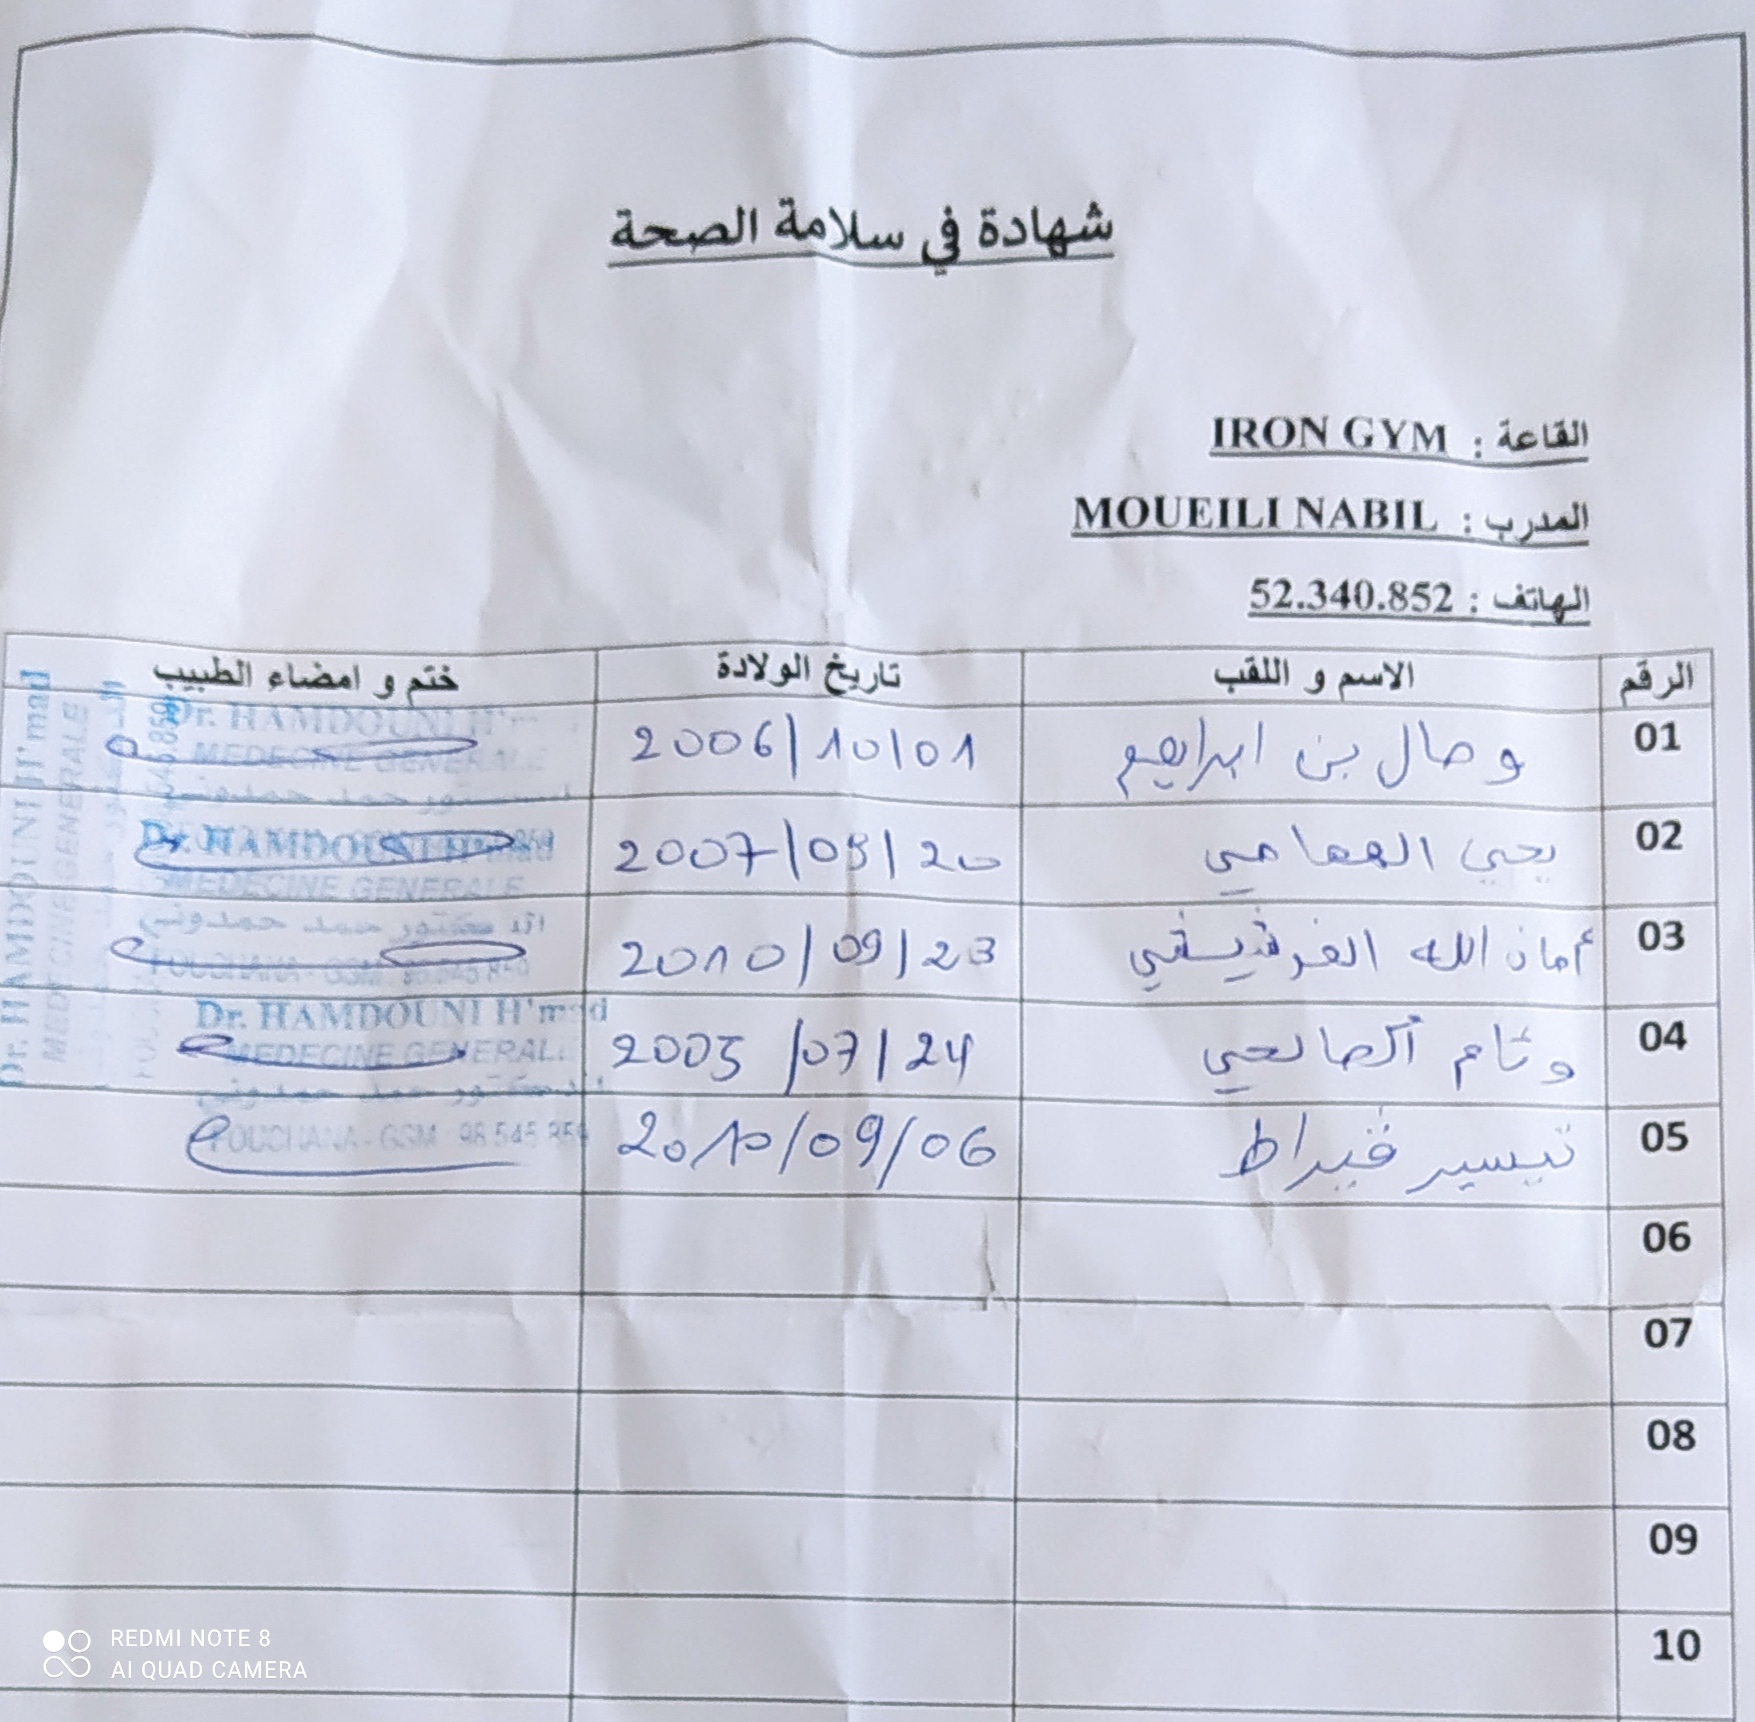 شهادة في سلامة الصحة
القاعة : IRON GYM
المدرب : MOUEILI NABIL
الهاتف : 52.340.852
الرقم الاسم و اللقب تاريخ الولادة ختم و امضاء الطبيب
01 وصال بن ابراهيم 2006/10/01
02 يحي 2007/05/20
03 أمان الله 2010/09/23
04 وئام الصالحي 2005/07/24
05 تيسير قيراط 2010/09/06
06
07
08
09
10
Dr. HAMDOUNI H'mad
MEDECINE GENERALE
الدكتور حمد حمدوني
FOUCHANA - GSM
Dr. HAMDOUNI H'mad
MEDECINE GENERALE
Dr. HAMDOUNI H'mad
MEDECINE GENERALE
الدكتور حمد حمدوني
FOUCHANA - GSM
Dr. HAMDOUNI H'mad
MEDECINE GENERALE
الدكتور حمد حمدوني
FOUCHANA - GSM 98 545 859
REDMI NOTE 8
AI QUAD CAMERA